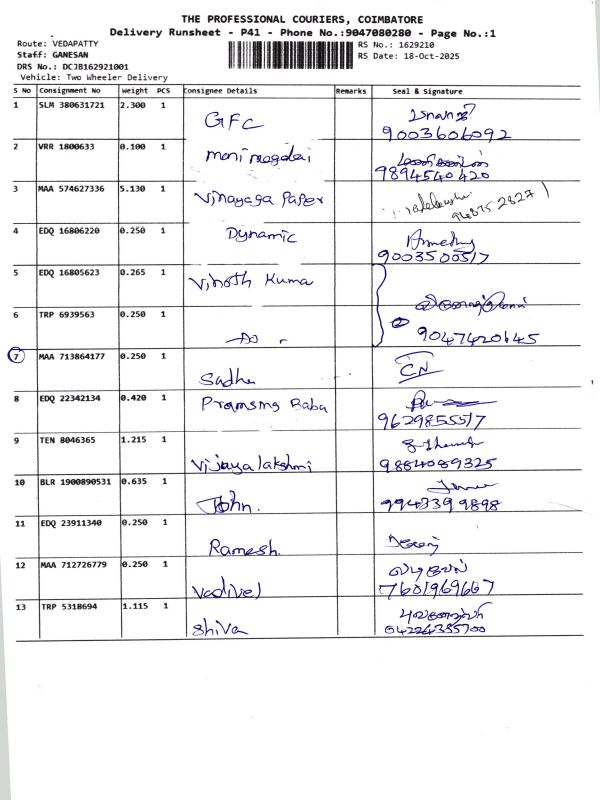 THE PROFESSIONAL COURIERS, COIMBATORE
Delivery Runsheet - P41 - Phone No.:9047080280 - Page No.:1
Route: VEDAPATTY
Staff: GANESAN
DRS No.: DCJB162921001
Vehicle: Two Wheeler Delivery
RS No.: 1629210
RS Date: 18-Oct-2025
S No Consignment No Weight PCS Consignee Details Remarks Seal & Signature
1 SLM 380631721 2.300 1 GFC
9003606092
2 VRR 1800633 0.100 1 mani magalai
9894540420
3 MAA 574627336 5.130 1 Vinayaga Paper
4 EDQ 16806220 0.250 1 Dynamic
9003500517
5 EDQ 16805623 0.265 1 Vinoth Kuma
6 TRP 6939563 0.250 1 Do
9047420645
7 MAA 713864177 0.250 1 Sadha
8 EDQ 22342134 0.420 1 Baba
9629855517
9 TEN 8046365 1.215 1 Vijayalakshmi
9884089325
10 BLR 1900890531 0.635 1 John.
9943399898
11 EDQ 23911340 0.250 1 Ramesh.
12 MAA 712726779 0.250 1 Vadivel
வடிவேல்
7601969667
13 TRP 5318694 1.115 1 Shiva
04224355700